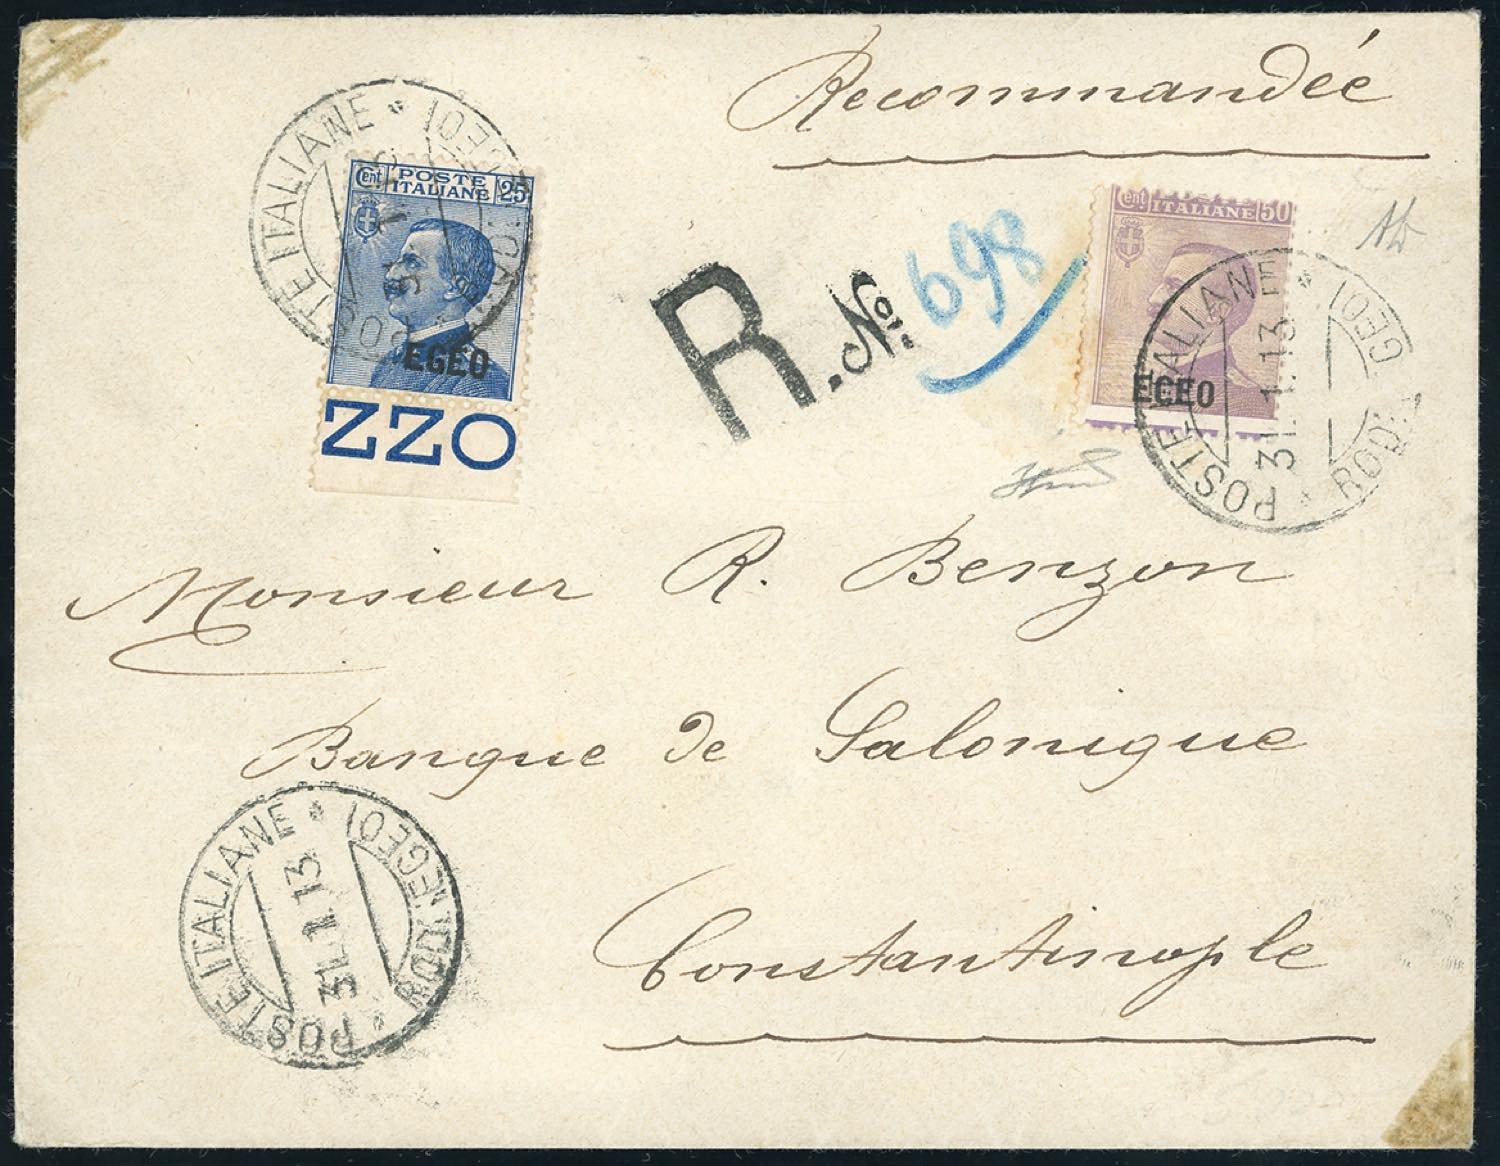 Recommandée
POSTE ITALIANE * RODI (EGEO)
Cent POSTE ITALIANE 25
EGEO
ZZO
R. No: 698
Cent ITALIANE 50
EGEO
POSTE ITALIANE * RODI (EGEO) *
31.1.13
Monsieur R. Benzon
Banque de Salonique
Constantinople
POSTE ITALIANE * RODI (EGEO) *
31.1.13